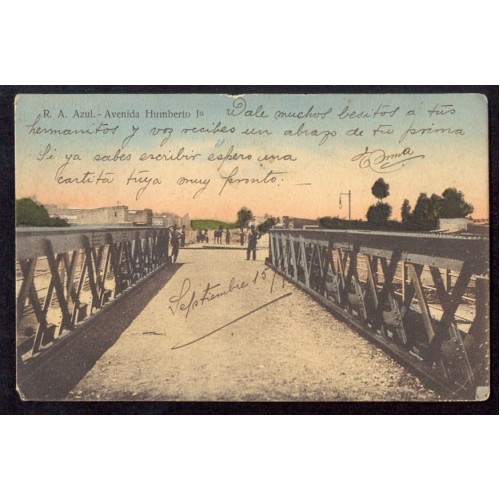 R. A. Azul. - Avenida Humberto Iº
Dale muchos besitos á tus
hermanitos y voz recibes un abrazo de tu prima
Si ya sabes escribir espero una
cartita tuya muy pronto.
Emma
Septiembre 15/